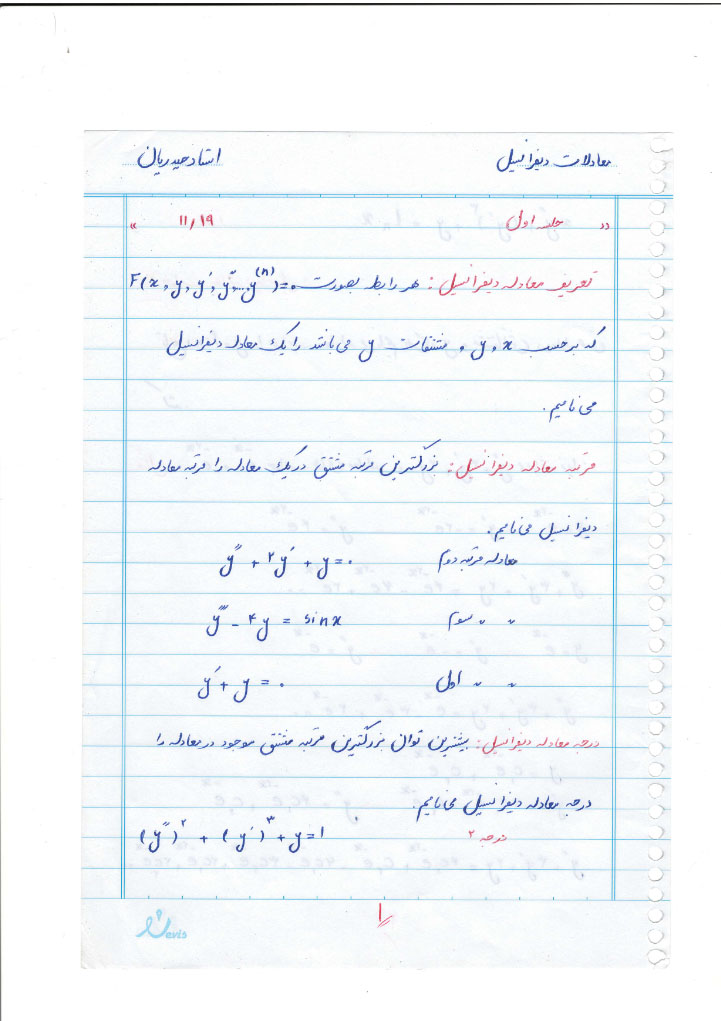 معادلات دیفرانسیل استاد حیدریان
« جلسه اول ۱۱/۱۹ »
تعریف معادله دیفرانسیل: هر رابطه بصورت F(x, y, y′, y″, ... y⁽ⁿ⁾) = ۰
که برحسب x، y، مشتقات y می باشد را یک معادله دیفرانسیل
می نامیم.
مرتبه معادله دیفرانسیل: بزرگترین مرتبه مشتق در یک معادله را مرتبه معادله
دیفرانسیل می نامیم.
معادله مرتبه دوم y″ + ۲y′ + y = ۰
" " سوم y‴ - ۴y = sinx
" " اول y′ + y = ۰
درجه معادله دیفرانسیل: بیشترین توان بزرگترین مرتبه مشتق موجود در معادله را
درجه معادله دیفرانسیل می نامیم.
درجه ۲ (y″)^۲ + (y′)^۳ + y = 1
۱